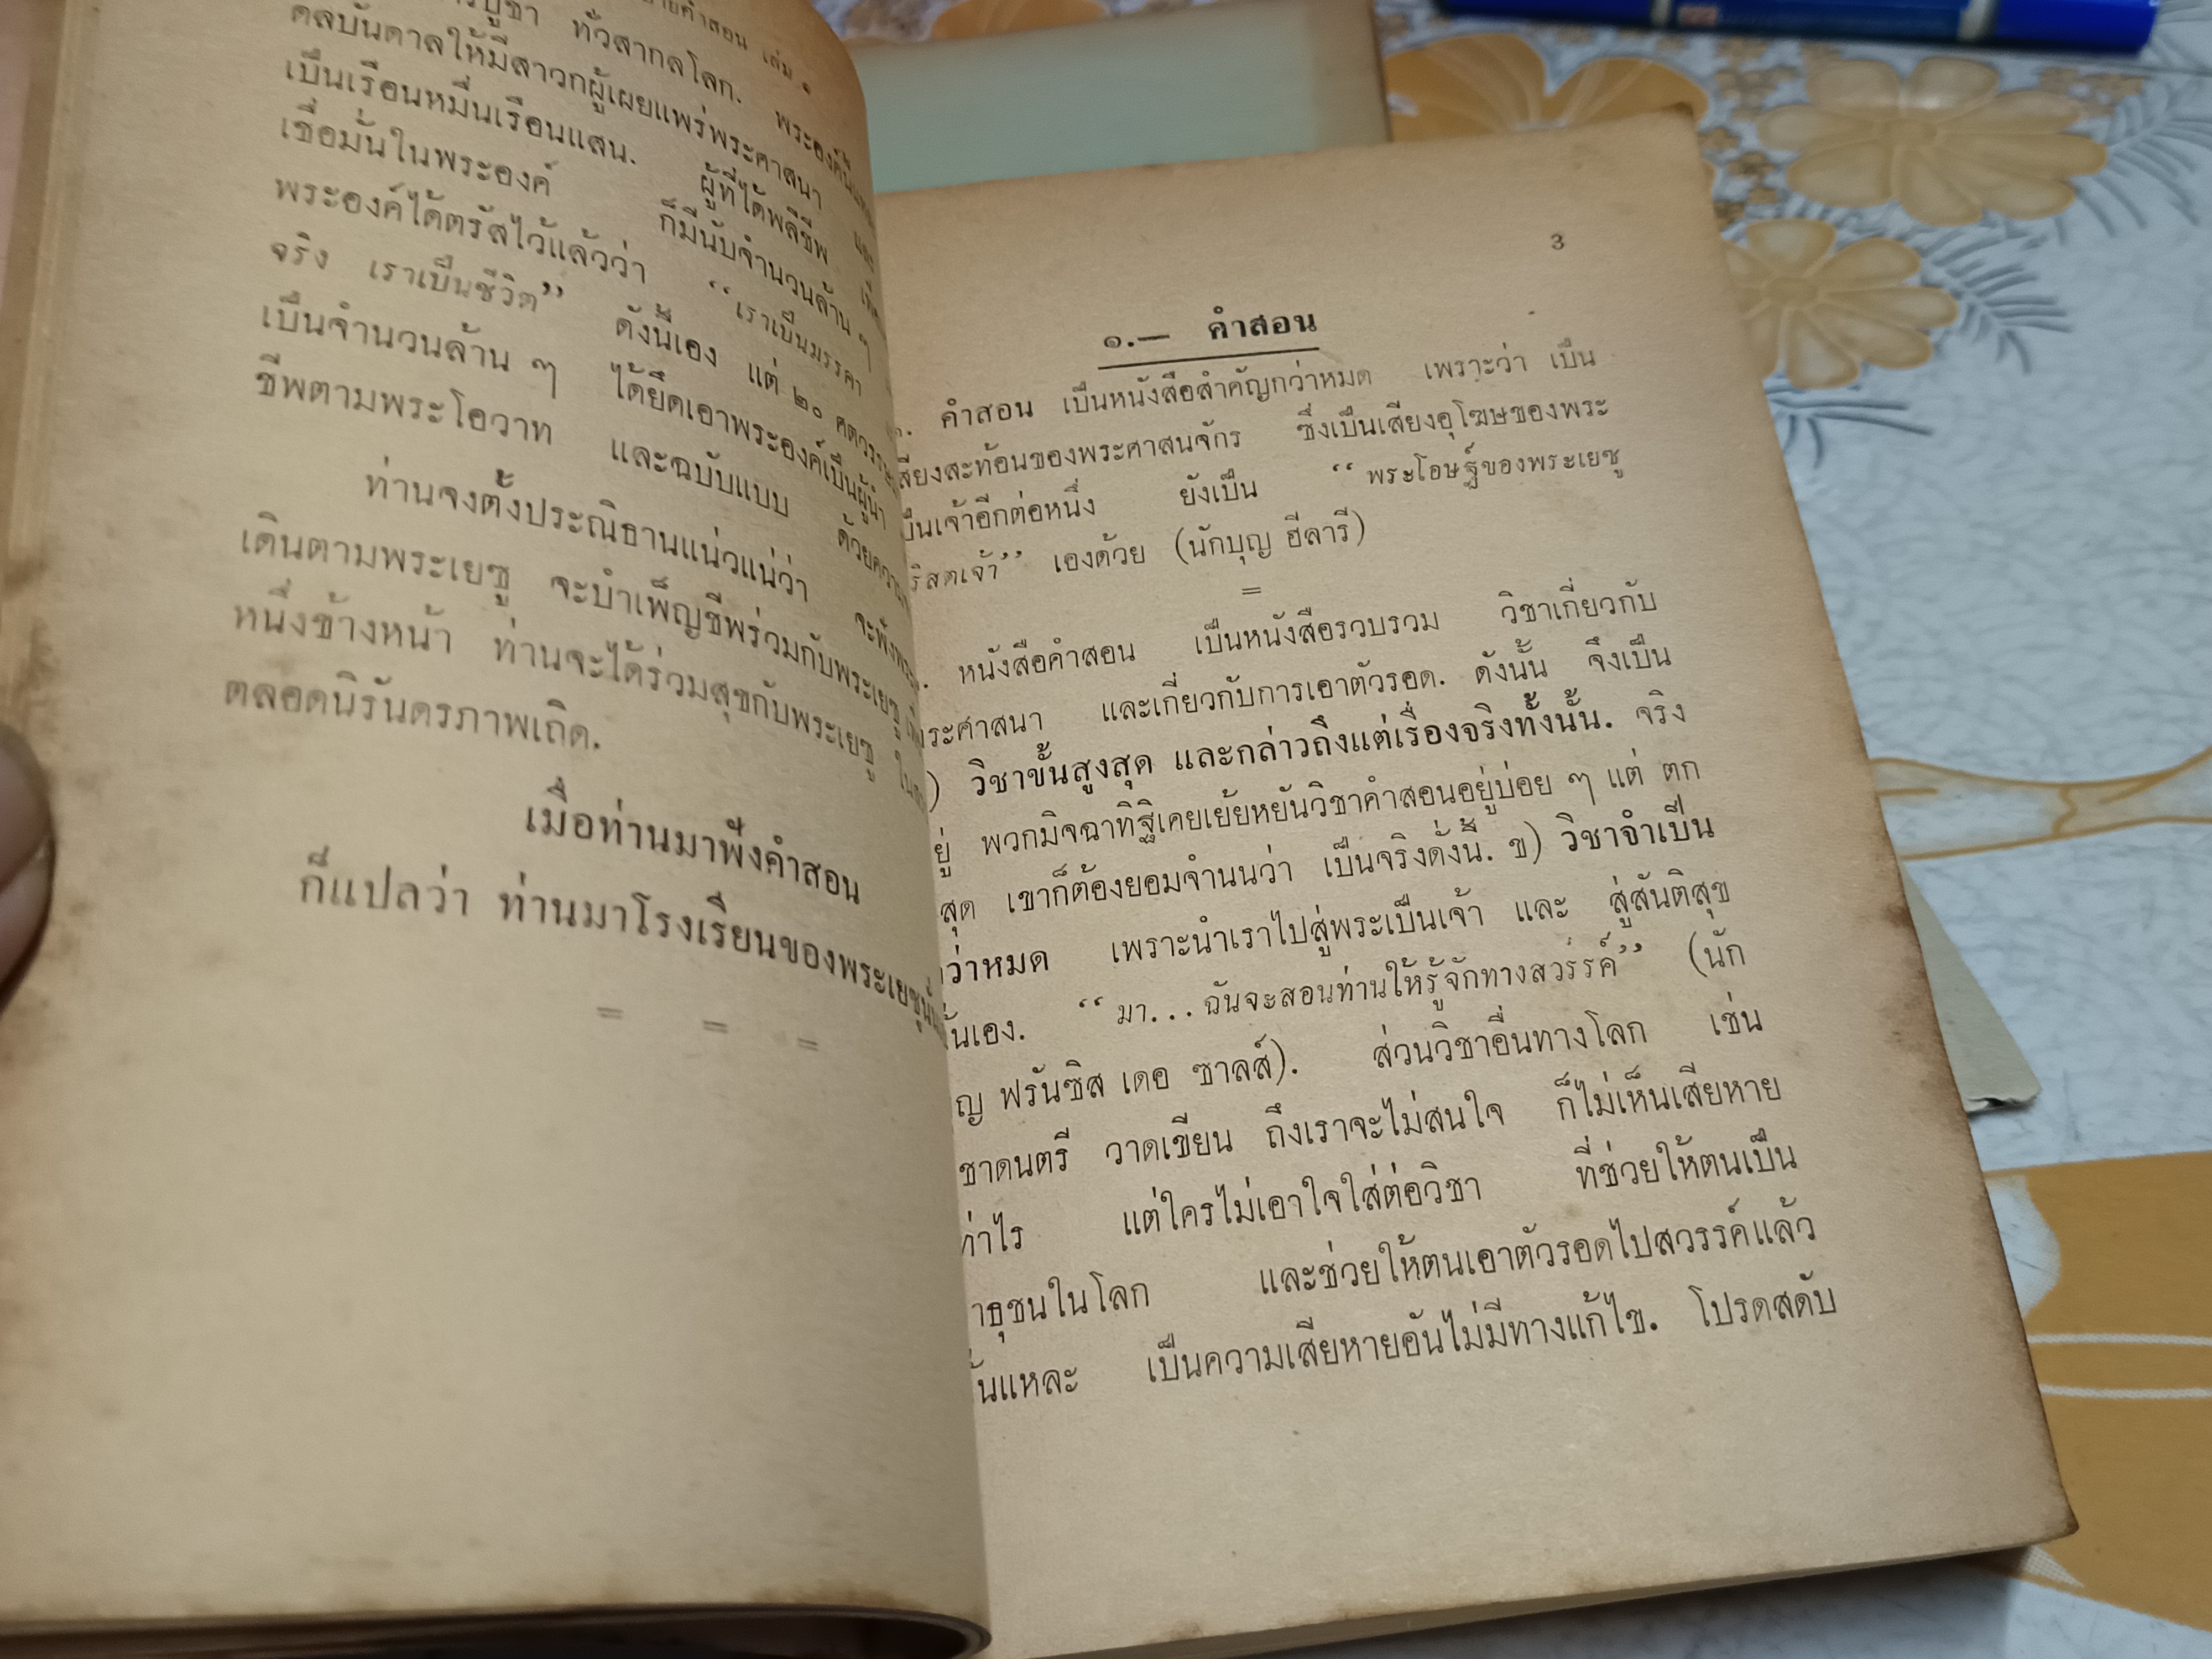 คำสอน เล่ม ๑
บูชา ทั่วสากลโลก. พระองค์
ดลบันดาลให้มีสาวกผู้เผยแพร่พระศาสนา และ
เป็นเรือนหมื่นเรือนแสน. ผู้ที่ได้พลีชีพ
เชื่อมั่นในพระองค์ ก็มีนับจำนวนล้าน ๆ
พระองค์ได้ตรัสไว้แล้วว่า “เราเป็นมรรคา
จริง เราเป็นชีวิต” ดังนี้เอง แต่ ๒๐ ศตวรรษ
เป็นจำนวนล้าน ๆ ได้ยึดเอาพระองค์เป็นผู้นำ
ชีพตามพระโอวาท และฉบับแบบ ด้วยความ
ท่านจงตั้งประณิธานแน่วแน่ว่า จะฟัง
เดินตามพระเยซู จะบำเพ็ญชีพร่วมกับพระเยซู
หนึ่งข้างหน้า ท่านจะได้ร่วมสุขกับพระเยซู
ตลอดนิรันดรภาพเถิด.
เมื่อท่านมาฟังคำสอน
ก็แปลว่า ท่านมาโรงเรียนของพระเยซู
= = =
3
๑.— คำสอน
คำสอน เป็นหนังสือสำคัญกว่าหมด เพราะว่า เป็น
เสียงสะท้อนของพระศาสนจักร ซึ่งเป็นเสียงอุโฆษของพระ
เป็นเจ้าอีกต่อหนึ่ง ยังเป็น “พระโอษฐ์ของพระเยซู
ริสตเจ้า” เองด้วย (นักบุญ ฮีลารี)
=
หนังสือคำสอน เป็นหนังสือรวบรวม วิชาเกี่ยวกับ
พระศาสนา และเกี่ยวกับการเอาตัวรอด. ดังนั้น จึงเป็น
) วิชาขั้นสูงสุด และกล่าวถึงแต่เรื่องจริงทั้งนั้น. จริง
ยู่ พวกมิจฉาทิฐิเคยเย้ยหยันวิชาคำสอนอยู่บ่อย ๆ แต่ ตก
สุด เขาก็ต้องยอมจำนนว่า เป็นจริงดั่งนี้. ข) วิชาจำเป็น
ว่าหมด เพราะนำเราไปสู่พระเป็นเจ้า และ สู่สันติสุข
นั้นเอง. “มา...ฉันจะสอนท่านให้รู้จักทางสวรรค์” (นัก
ญ ฟรันซิส เดอ ซาลส์). ส่วนวิชาอื่นทางโลก เช่น
ชาดนตรี วาดเขียน ถึงเราจะไม่สนใจ ก็ไม่เห็นเสียหาย
ท่าไร แต่ใครไม่เอาใจใส่ต่อวิชา ที่ช่วยให้ตนเป็น
าธุชนในโลก และช่วยให้ตนเอาตัวรอดไปสวรรค์แล้ว
นั้นแหละ เป็นความเสียหายอันไม่มีทางแก้ไข. โปรดสดับ